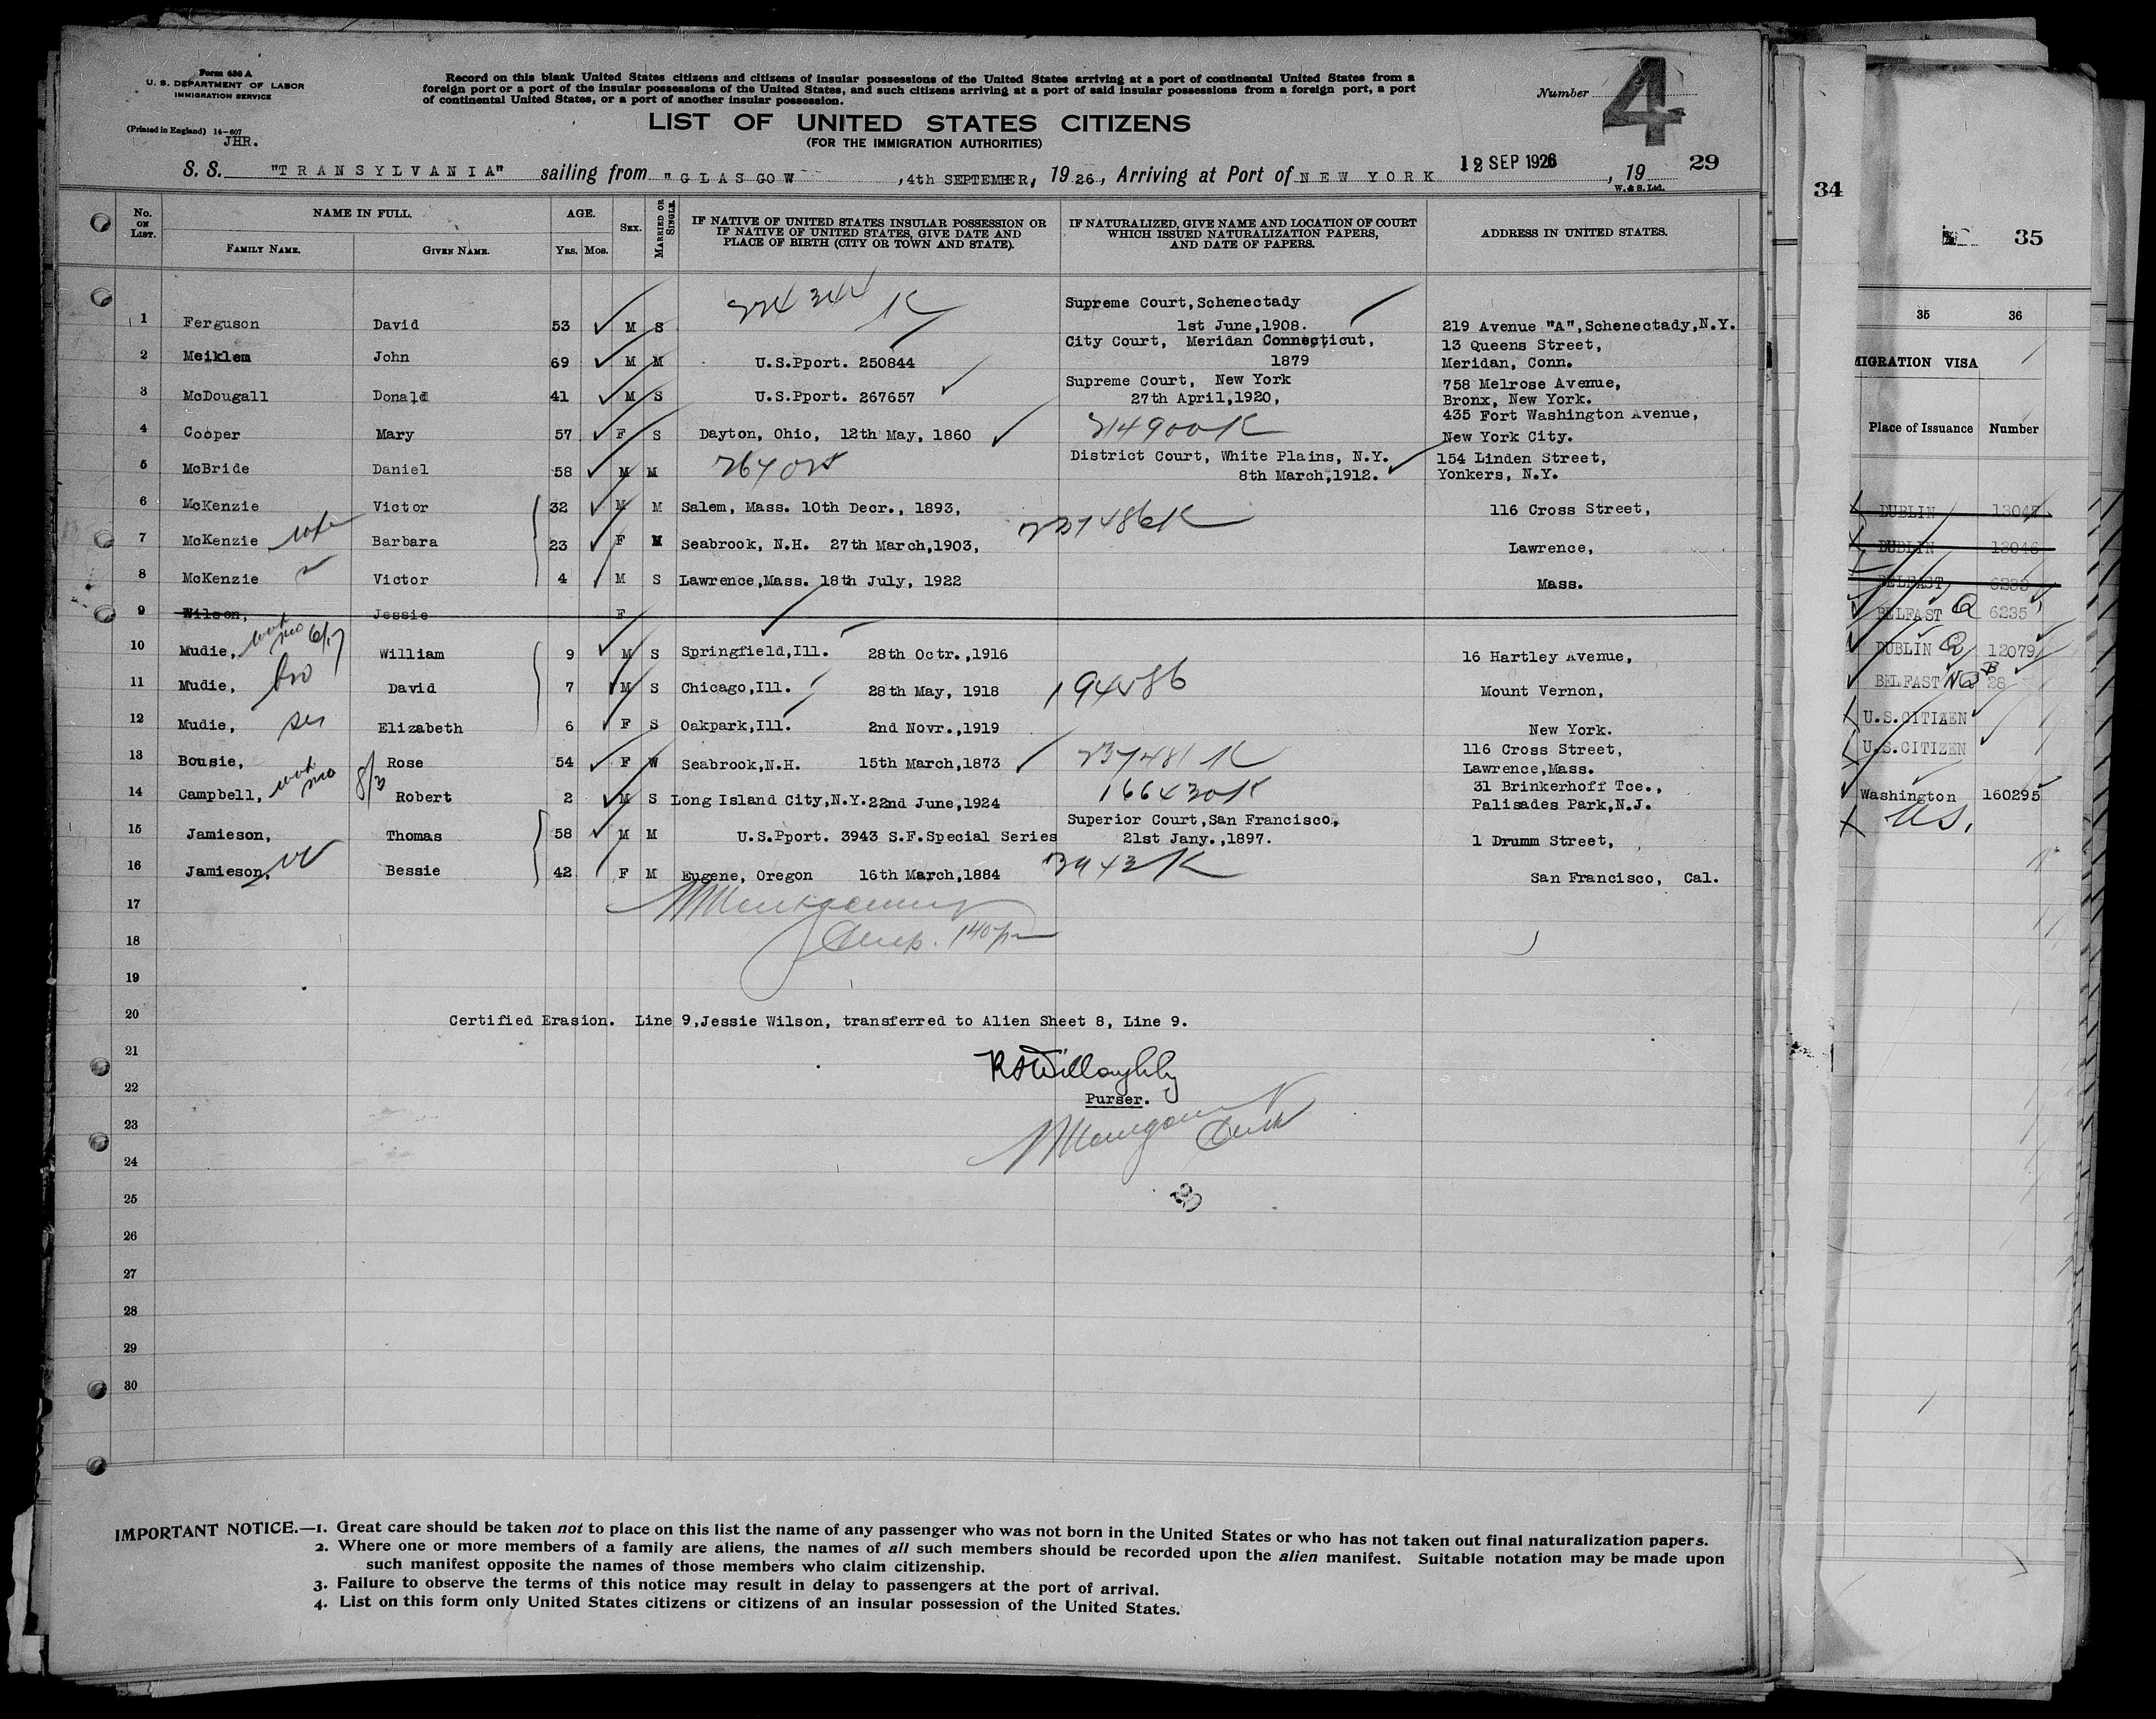 Form 630 A
U. S. DEPARTMENT OF LABOR
IMMIGRATION SERVICE
(Printed in England) 14-607
JHR.
Record on this blank United States citizens and citizens of insular possessions of the United States arriving at a port of continental United States from a
foreign port or a port of the insular possessions of the United States, and such citizens arriving at a port of said insular possessions from a foreign port, a port
of continental United States, or a port of another insular possession.
Number 4
LIST OF UNITED STATES CITIZENS
(FOR THE IMMIGRATION AUTHORITIES)
S. S. "TRANSYLVANIA" sailing from "GLASGOW , 4th SEPTEMBER, 1926, Arriving at Port of NEW YORK 12 SEP 1926 , 19 29
W. & S. Ltd.
No. ON LIST. NAME IN FULL. AGE. SEX. MARRIED OR SINGLE. IF NATIVE OF UNITED STATES INSULAR POSSESSION OR IF NATIVE OF UNITED STATES, GIVE DATE AND PLACE OF BIRTH (CITY OR TOWN AND STATE). IF NATURALIZED, GIVE NAME AND LOCATION OF COURT WHICH ISSUED NATURALIZATION PAPERS, AND DATE OF PAPERS. ADDRESS IN UNITED STATES.
FAMILY NAME. GIVEN NAME. YRS. MOS.
224344 K Supreme Court, Schenectady
1 Ferguson David 53 M S 1st June, 1908. 219 Avenue "A", Schenectady, N.Y.
City Court, Meridan Connecticut, 13 Queens Street,
2 Meiklem John 69 M M U.S.Pport. 250844 1879 Meridan, Conn.
Supreme Court, New York 758 Melrose Avenue,
3 McDougall Donald 41 M S U.S.Pport. 267657 27th April, 1920, Bronx, New York.
435 Fort Washington Avenue,
4 Cooper Mary 57 F S Dayton, Ohio, 12th May, 1860 214900K New York City.
District Court, White Plains, N.Y. 154 Linden Street,
5 McBride Daniel 58 M M 8th March, 1912. Yonkers, N.Y.
6 McKenzie Victor 32 M M Salem, Mass. 10th Decr., 1893, 116 Cross Street,
7 McKenzie wife Barbara 23 F M Seabrook, N.H. 27th March, 1903, 227486K Lawrence,
8 McKenzie Victor 4 M S Lawrence, Mass. 18th July, 1922 Mass.
9 Wilson, Jessie F
10 Mudie, 6/17 William 9 M S Springfield, Ill. 28th Octr., 1916 16 Hartley Avenue,
11 Mudie, bro David 7 M S Chicago, Ill. 28th May, 1918 194586 Mount Vernon,
12 Mudie, sis Elizabeth 6 F S Oakpark, Ill. 2nd Novr., 1919 New York.
116 Cross Street,
13 Bousie, Rose 54 F W Seabrook, N.H. 15th March, 1873 237481 K Lawrence, Mass.
31 Brinkerhoff Tce.,
14 Campbell, 8/3 Robert 2 M S Long Island City, N.Y. 22nd June, 1924 166430K Palisades Park, N.J.
Superior Court, San Francisco,
15 Jamieson, Thomas 58 M M U.S.Pport. 3943 S.F. Special Series 21st Jany., 1897. 1 Drumm Street,
16 Jamieson, Bessie 42 F M Eugene, Oregon 16th March, 1884 3943K San Francisco, Cal.
17
18 140pm
19
20 Certified Erasion. Line 9, Jessie Wilson, transferred to Alien Sheet 8, Line 9.
21 RSWilloughby
22 Purser.
23
24
25
26
27
28
29
30
IMPORTANT NOTICE.—1. Great care should be taken not to place on this list the name of any passenger who was not born in the United States or who has not taken out final naturalization papers.
2. Where one or more members of a family are aliens, the names of all such members should be recorded upon the alien manifest. Suitable notation may be made upon
such manifest opposite the names of those members who claim citizenship.
3. Failure to observe the terms of this notice may result in delay to passengers at the port of arrival.
4. List on this form only United States citizens or citizens of an insular possession of the United States.
34
35
35 36
MIGRATION VISA
Place of Issuance Number
DUBLIN 13047
DUBLIN 13046
BELFAST 6233
BELFAST Q 6235
DUBLIN Q 12079
BELFAST 28
U.S.CITIZEN
U.S.CITIZEN
Washington 160295
U.S.